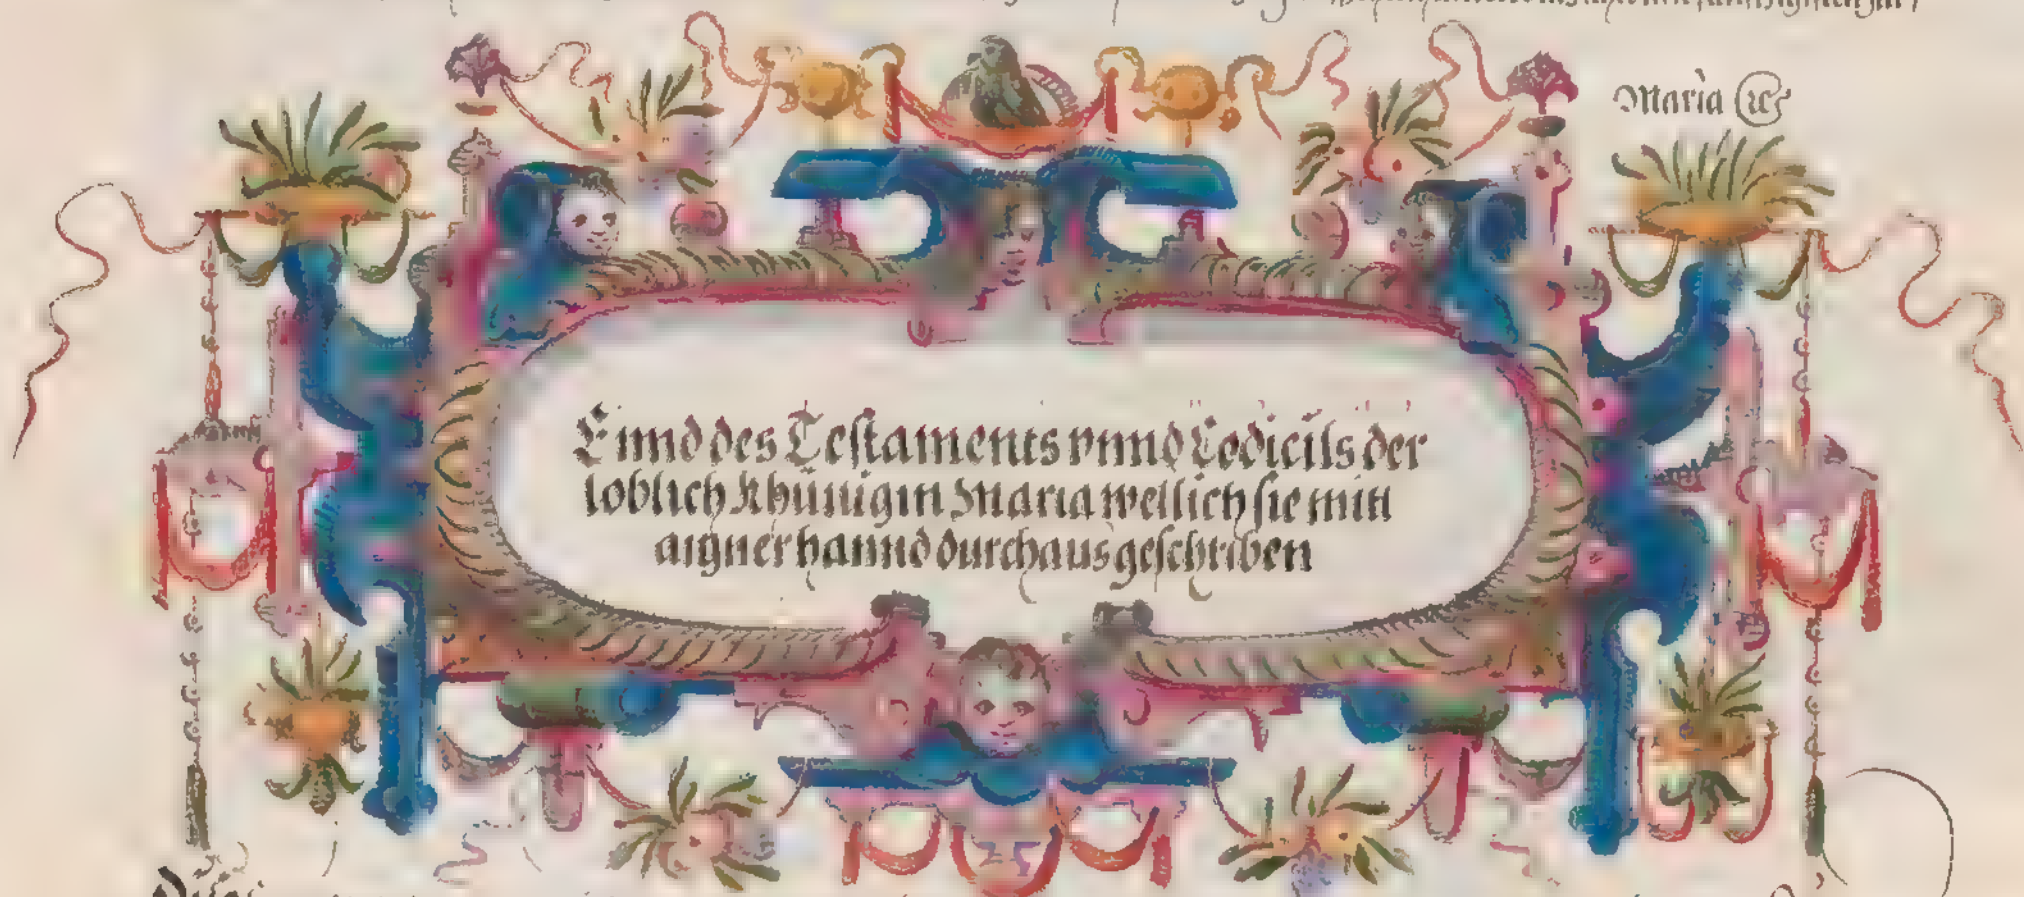 Maria
Ennd des Testaments vnnd Codicils der
loblich Khünigin Maria wellich sie mitt
aigner hannd durchaus geschriben